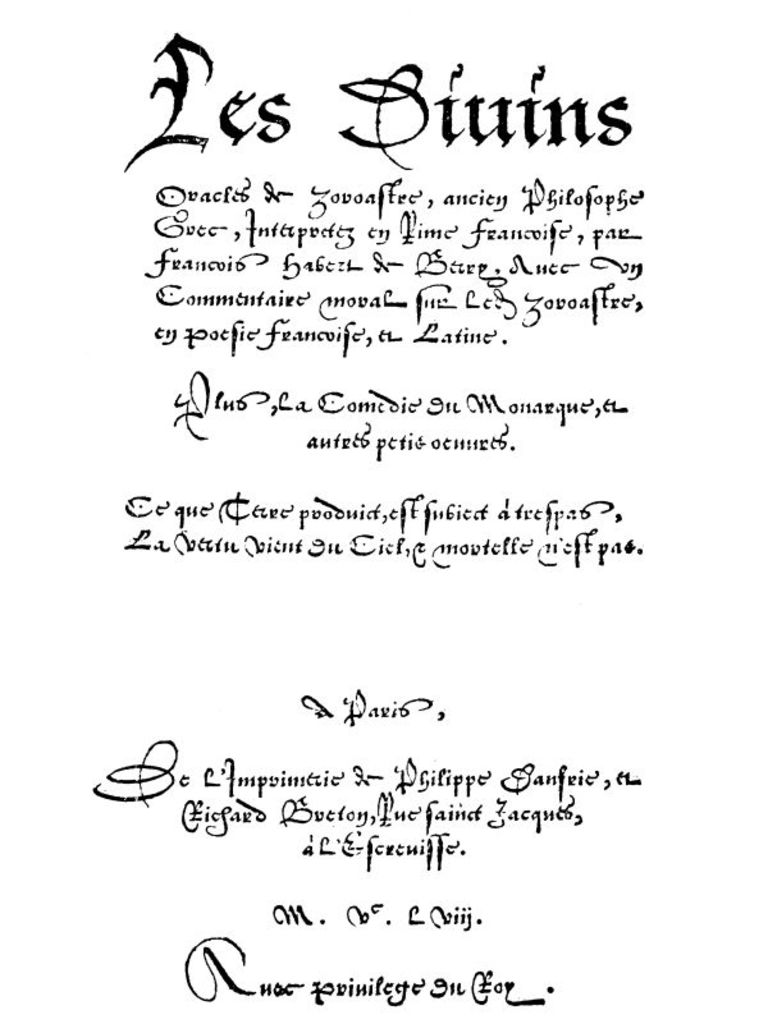 Les Diuins
Oracles de Zoroastre, ancien Philosophe
Grec, Interpretez en Rime Francoise, par
Francois Habert de Berry. Auec vn
Commentaire moral sur led Zoroastre,
en poesie Francoise, et Latine.
Plus, La Comedie du Monarque, et
autres petis oeuures.
Ce que Terre produict, est subiect à trespas,
La vertu vient du Ciel, & mortelle n'est pas.
A Paris,
De L'Imprimerie de Philippe Danfrie, et
Richard Breton, Rue sainct Jacques,
à L'Escreuisse.
M. vc. Lviij.
Auec priuilege du Roy.